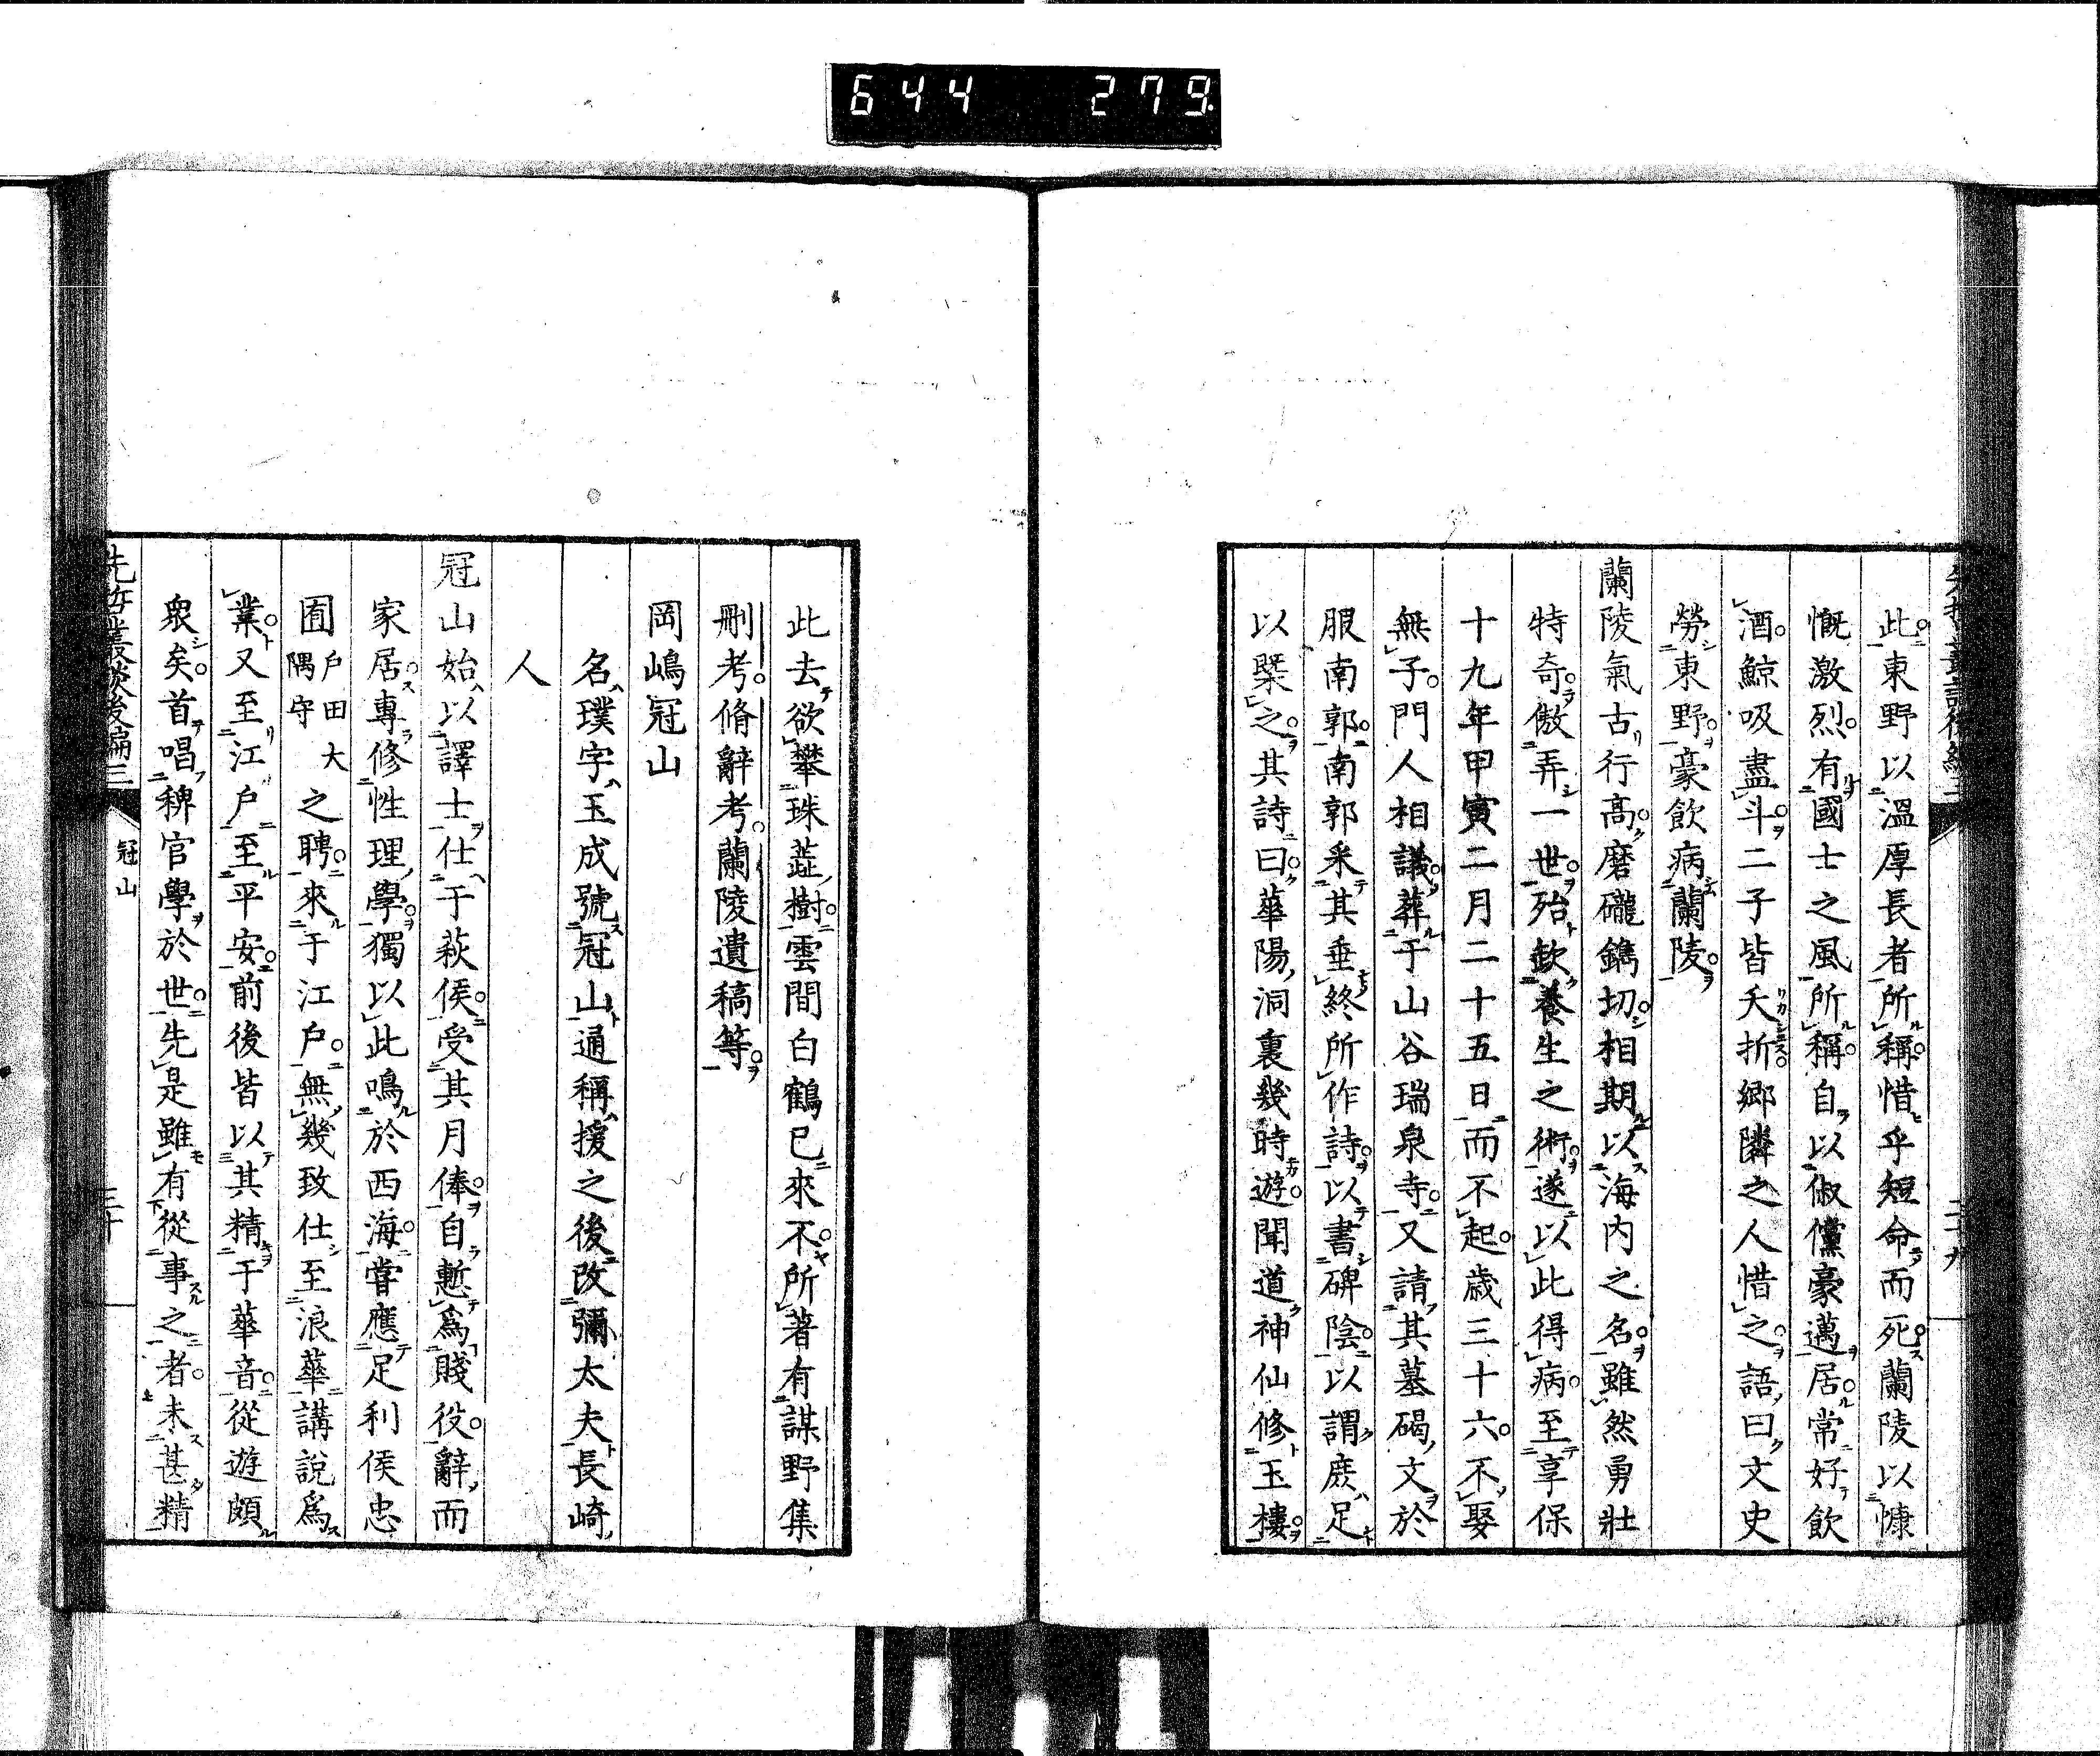 644 279
此東野以溫厚長者所稱惜乎短命而死蘭陵以慷
慨激烈有國士之風所稱自以俶儻豪邁居常好飲
酒鯨吸盡斗二子皆夭折鄉隣之人惜之語曰文史
勞東野豪飲病蘭陵
蘭陵氣古行高磨礲鐫切相期以海内之名雖然勇壯
特奇傲弄一世殆歉養生之術遂以此得病至享保
十九年甲寅二月二十五日而不起歲三十六不娶
無子門人相議葬于山谷瑞泉寺又請其墓碣文於
服南郭南郭釆其垂終所作詩以書碑陰以謂庶足
以槩之其詩曰華陽洞裏幾時遊聞道神仙修玉樓
此去欲攀珠蘂樹雲間白鶴已來不所著有謀野集
刪考脩辭考蘭陵遺稿等
岡嶋冠山
名璞字玉成號冠山通稱援之後改彌太夫長崎
人
冠山始以譯士仕于萩侯受其月俸自慙爲賤役辭而
家居專修性理學獨以此鳴於西海嘗應足利侯忠
囿戶田大隅守之聘來于江戶無幾致仕至浪華講說爲
業又至江戶至平安前後皆以其精于華音從遊頗
衆矣首唱稗官學於世先是雖有從事之者未甚精
先哲叢談後編三
冠山
三十